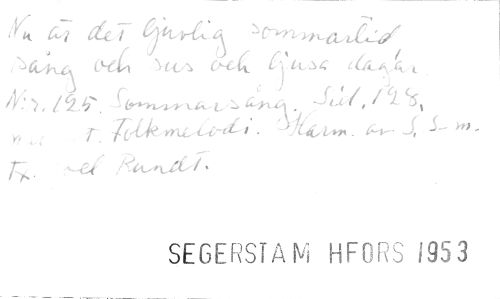 Nu är det ljuvlig sommartid
sång och sus och ljusa dagar.
N:r. 125. Sommarsång. Sid. 128,
t. Folkmelodi. Harm. av S. S-m.
Tx. Rundt.
SEGERSTAM HFORS 1953